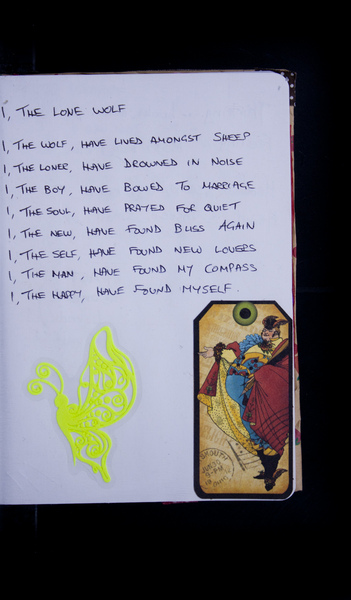 I, THE LONE WOLF
I, THE WOLF, HAVE LIVED AMONGST SHEEP
I, THE LONER, HAVE DROWNED IN NOISE
I, THE BOY, HAVE BOWED TO MARRIAGE
I, THE SOUL, HAVE PRAYED FOR QUIET
I, THE NEW, HAVE FOUND BLISS AGAIN
I, THE SELF, HAVE FOUND NEW LOVERS
I, THE MAN, HAVE FOUND MY COMPASS
I, THE HAPPY, HAVE FOUND MYSELF.